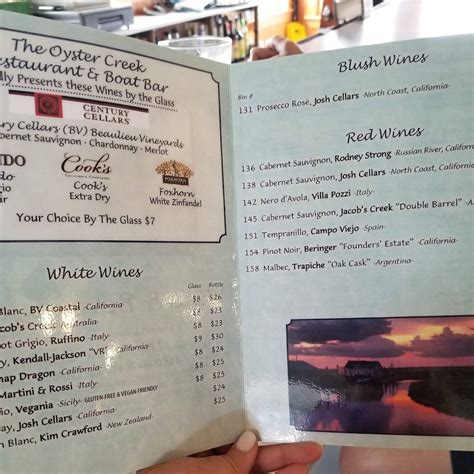 The Oyster Creek
staurant & Boat Bar
dly Presents these Wines by the Glass
CENTURY
CELLARS
ry Cellars (BV) Beaulieu Vineyards
abernet Sauvignon - Chardonnay - Merlot
NDO
do
gio
ir
Cook's
Cook's
Extra Dry
FOXHORN
Foxhorn
White Zinfandel
Your Choice By The Glass $7
White Wines
Glass Bottle
Blanc, BV Coastal -California- $8 $26
acob's Creek -Australia- $8 $24
ot Grigio, Ruffino -Italy- $8 $25
y, Kendall-Jackson "VR" -California-
nap Dragon -California- $8 $25
Martini & Rossi -Italy- $8 $25
io, Vegania -Sicily- GLUTEN-FREE & VEGAN-FRIENDLY $25
ay, Josh Cellars -California- $25
n Blanc, Kim Crawford -New Zealand-
Blush Wines
Bin #
131 Prosecco Rosé, Josh Cellars -North Coast, California-
Red Wines
136 Cabernet Sauvignon, Rodney Strong -Russian River, Californi
138 Cabernet Sauvignon, Josh Cellars -North Coast, California-
142 Nero d'Avola, Villa Pozzi -Italy-
145 Cabernet Sauvignon, Jacob's Creek "Double Barrel" -A
151 Tempranillo, Campo Viejo -Spain-
154 Pinot Noir, Beringer "Founders' Estate" -California-
158 Malbec, Trapiche "Oak Cask" -Argentina-